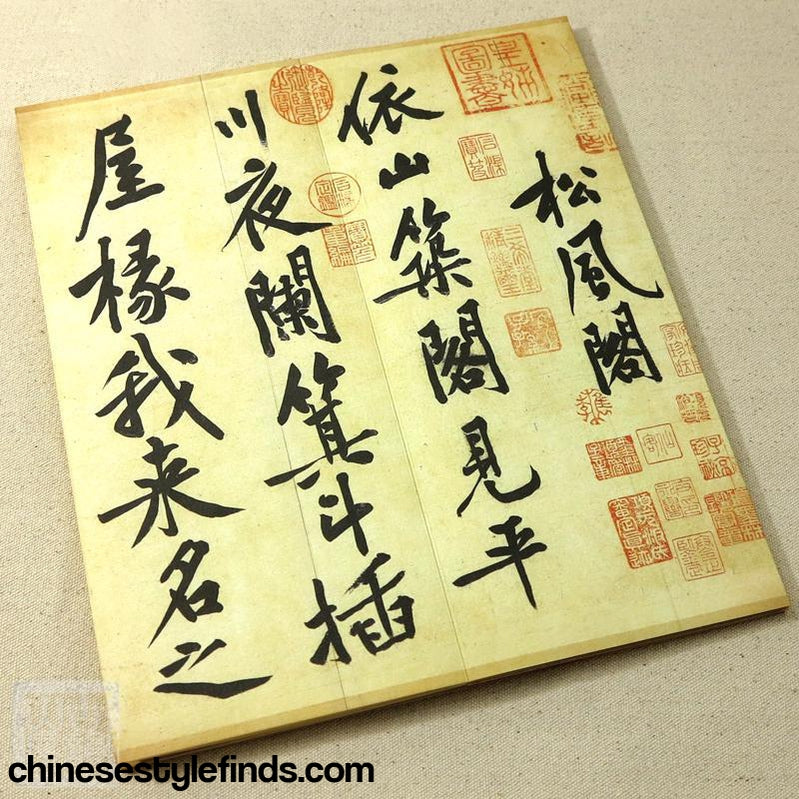 松風閣
依山築閣見平
川夜闌箕斗插
屋椽我来名之
皇姊圖書
chinesestylefinds.com